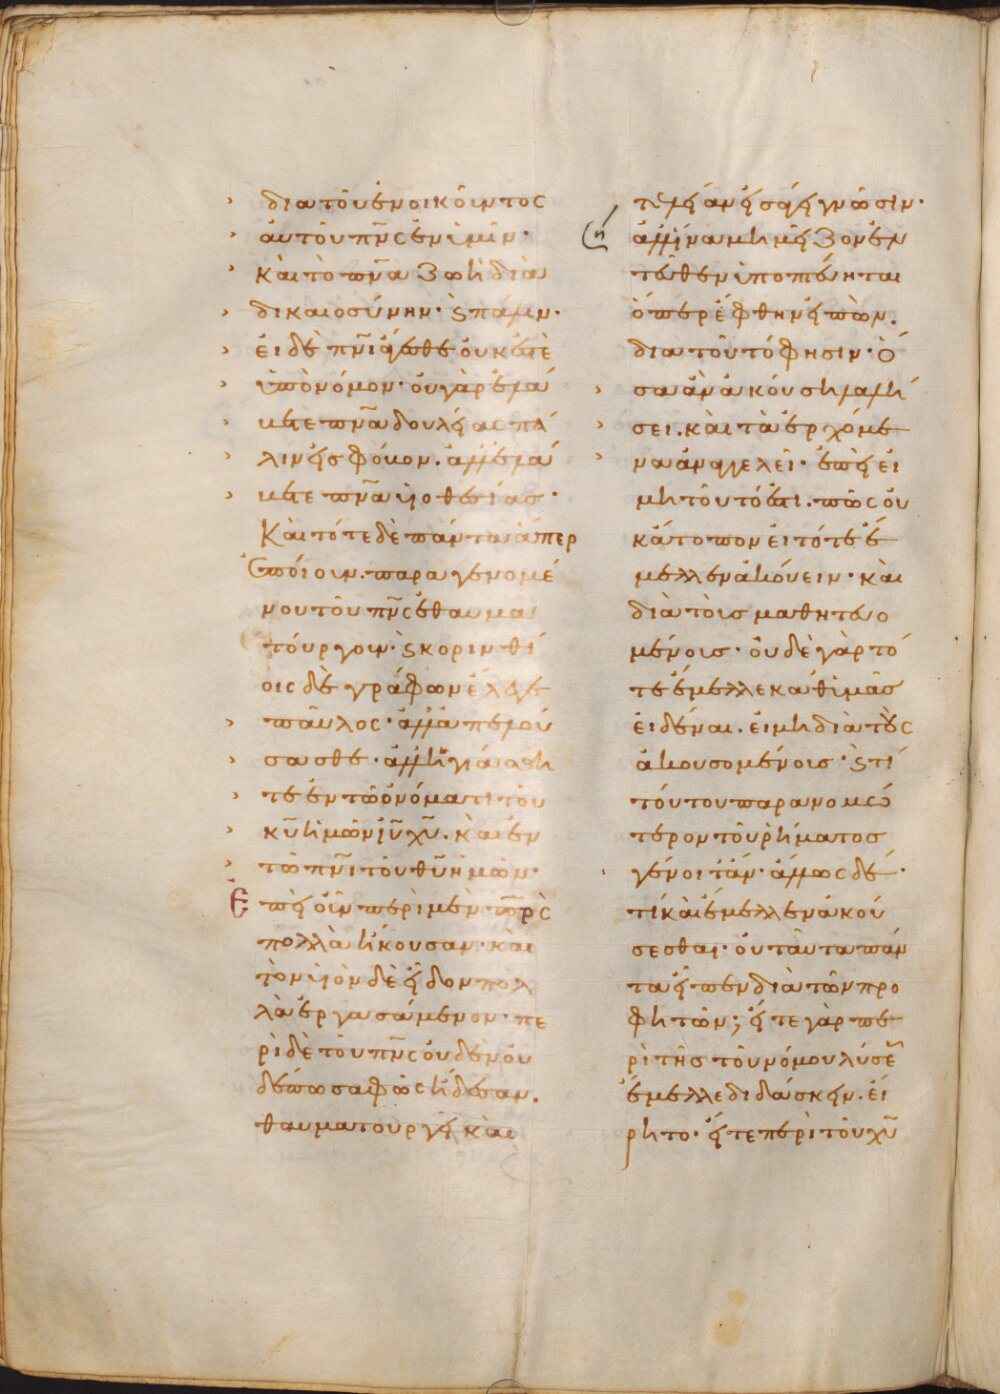 διὰ τοῦ ἐνοικοῦντος
αὐτοῦ πν̅ς ἐν ὑμῖν·
καὶ τὸ πν̅α ζωὴ διὰ
δικαιοσύνην· ϗ πάλιν·
εἰ δὲ πν̅ι ἄγεσθε οὐκ ἐστὲ
ὑπὸ νόμον· οὐ γὰρ ἐλά
βετε πν̅α δουλείας πά
λιν εἰς φόβον. ἀλλ' ἐλά
βετε πν̅α υἱοθεσίας·
Καὶ τότε δὲ πάντα ἅπερ
ἐποίουν. παραγενομέ
νου τοῦ πν̅ς ἐθαυμα
τούργουν· ϗ κορινθί
οις δὲ γράφων ἔλεγε
παῦλος· ἀλλὰ ἀπελού
σασθε· ἀλλ' ἡγιάσθη
τε ἐν τῶ ὀνόματι τοῦ
κυ̅ ἡμῶν ιυ̅ χυ̅. καὶ ἐν
τῶ πν̅ι τοῦ θυ̅ ἡμῶν·
Ἐπεὶ οὖν περὶ μὲν το̅υ πρ̅ς
πολλὰ ἤκουσαν· καὶ
τὸν υἱὸν δὲ εἶδον πολ
λὰ ἐργασάμενον· πε
ρὶ δὲ τοῦ πν̅ς οὐδὲν οὐ
δέπω σαφῶς ἤδεσαν.
θαυματουργεῖ καὶ
τελείαν εἰσάγει γνῶσιν·
ἀλλ' ἵνα μὴ μεῖζον ἐν
τεῦθεν ὑποπτεύηται
ὅπερ ἔφθην εἰπὼν.
διὰ τοῦτό φησιν· ὅ
σα ἂν ἀκούση λαλή
σει. καὶ τὰ ἐρχόμε
να ἀναγγελεῖ· ἐπεὶ εἰ
μὴ τοῦτό ἐστι. πῶς οὐ
κ ἄτοπον εἰ τότε ἔ
μελλεν ἀκούειν· καὶ
διὰ τοὺς μαθητευο
μένους· οὐδὲ γὰρ τό
τε ἔμελλε καθ' ἡμᾶς
εἰδέναι. εἰ μὴ διὰ τοὺς
ἀκουσομένους· ϗ τί
τούτου παρανομώ
τερον τοῦ ῥήματος
γένοιτ' ἄν· ἄλλως δὲ·
τί καὶ ἔμελλεν ἀκού
σεσθαι· οὐ ταῦτα πάν
τα εἶπεν διὰ τῶν προ
φητῶν; εἴτε γὰρ πε
ρὶ τῆς τοῦ νόμου λύσε̅
ἔμελλε διδάσκειν. εἴ
ρητο· εἴτε περὶ τοῦ χυ̅